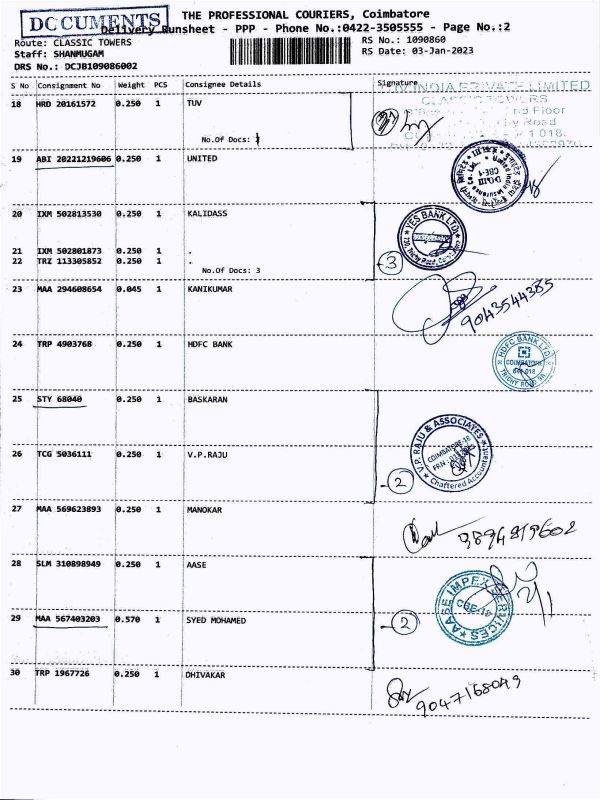 DOCUMENTS
THE PROFESSIONAL COURIERS, Coimbatore
Delivery Runsheet - PPP - Phone No.:0422-3505555 - Page No.:2
Route: CLASSIC TOWERS RS No.: 1090860
Staff: SHANMUGAM RS Date: 03-Jan-2023
DRS No.: DCJB109086002
S No Consignment No Weight PCS Consignee Details Signature
INDIA PRIVATE LIMITED
18 HRD 20161572 0.250 1 TUV
CLASSIC TOWERS
Floor
Road
No.Of Docs:
19 ABI 20221219606 0.250 1 UNITED
United India Insurance Co. Ltd.
CBE-1
20 IXM 502813530 0.250 1 KALIDASS
YES BANK LTD
Trichy Road,
21 IXM 502801873 0.250 1 .
22 TRZ 113305852 0.250 1 .
3
No.Of Docs: 3
23 MAA 294608654 0.045 1 KANIKUMAR
9043544385
24 TRP 4903768 0.250 1 HDFC BANK
HDFC BANK LTD
COIMBATORE
641 018
TRICHY ROAD BR
25 STY 68040 0.250 1 BASKARAN
V.P. RAJU & ASSOCIATES
COIMBATORE-18
FRN
Chartered Accountants
26 TCG 5036111 0.250 1 V.P.RAJU
2
27 MAA 569623893 0.250 1 MANOKAR
9894819602
28 SLM 310898949 0.250 1 AASE
AASE IMPEX SERVICES
CBE-18
29 MAA 567403203 0.570 1 SYED MOHAMED
2
30 TRP 1967726 0.250 1 DHIVAKAR
9047168049